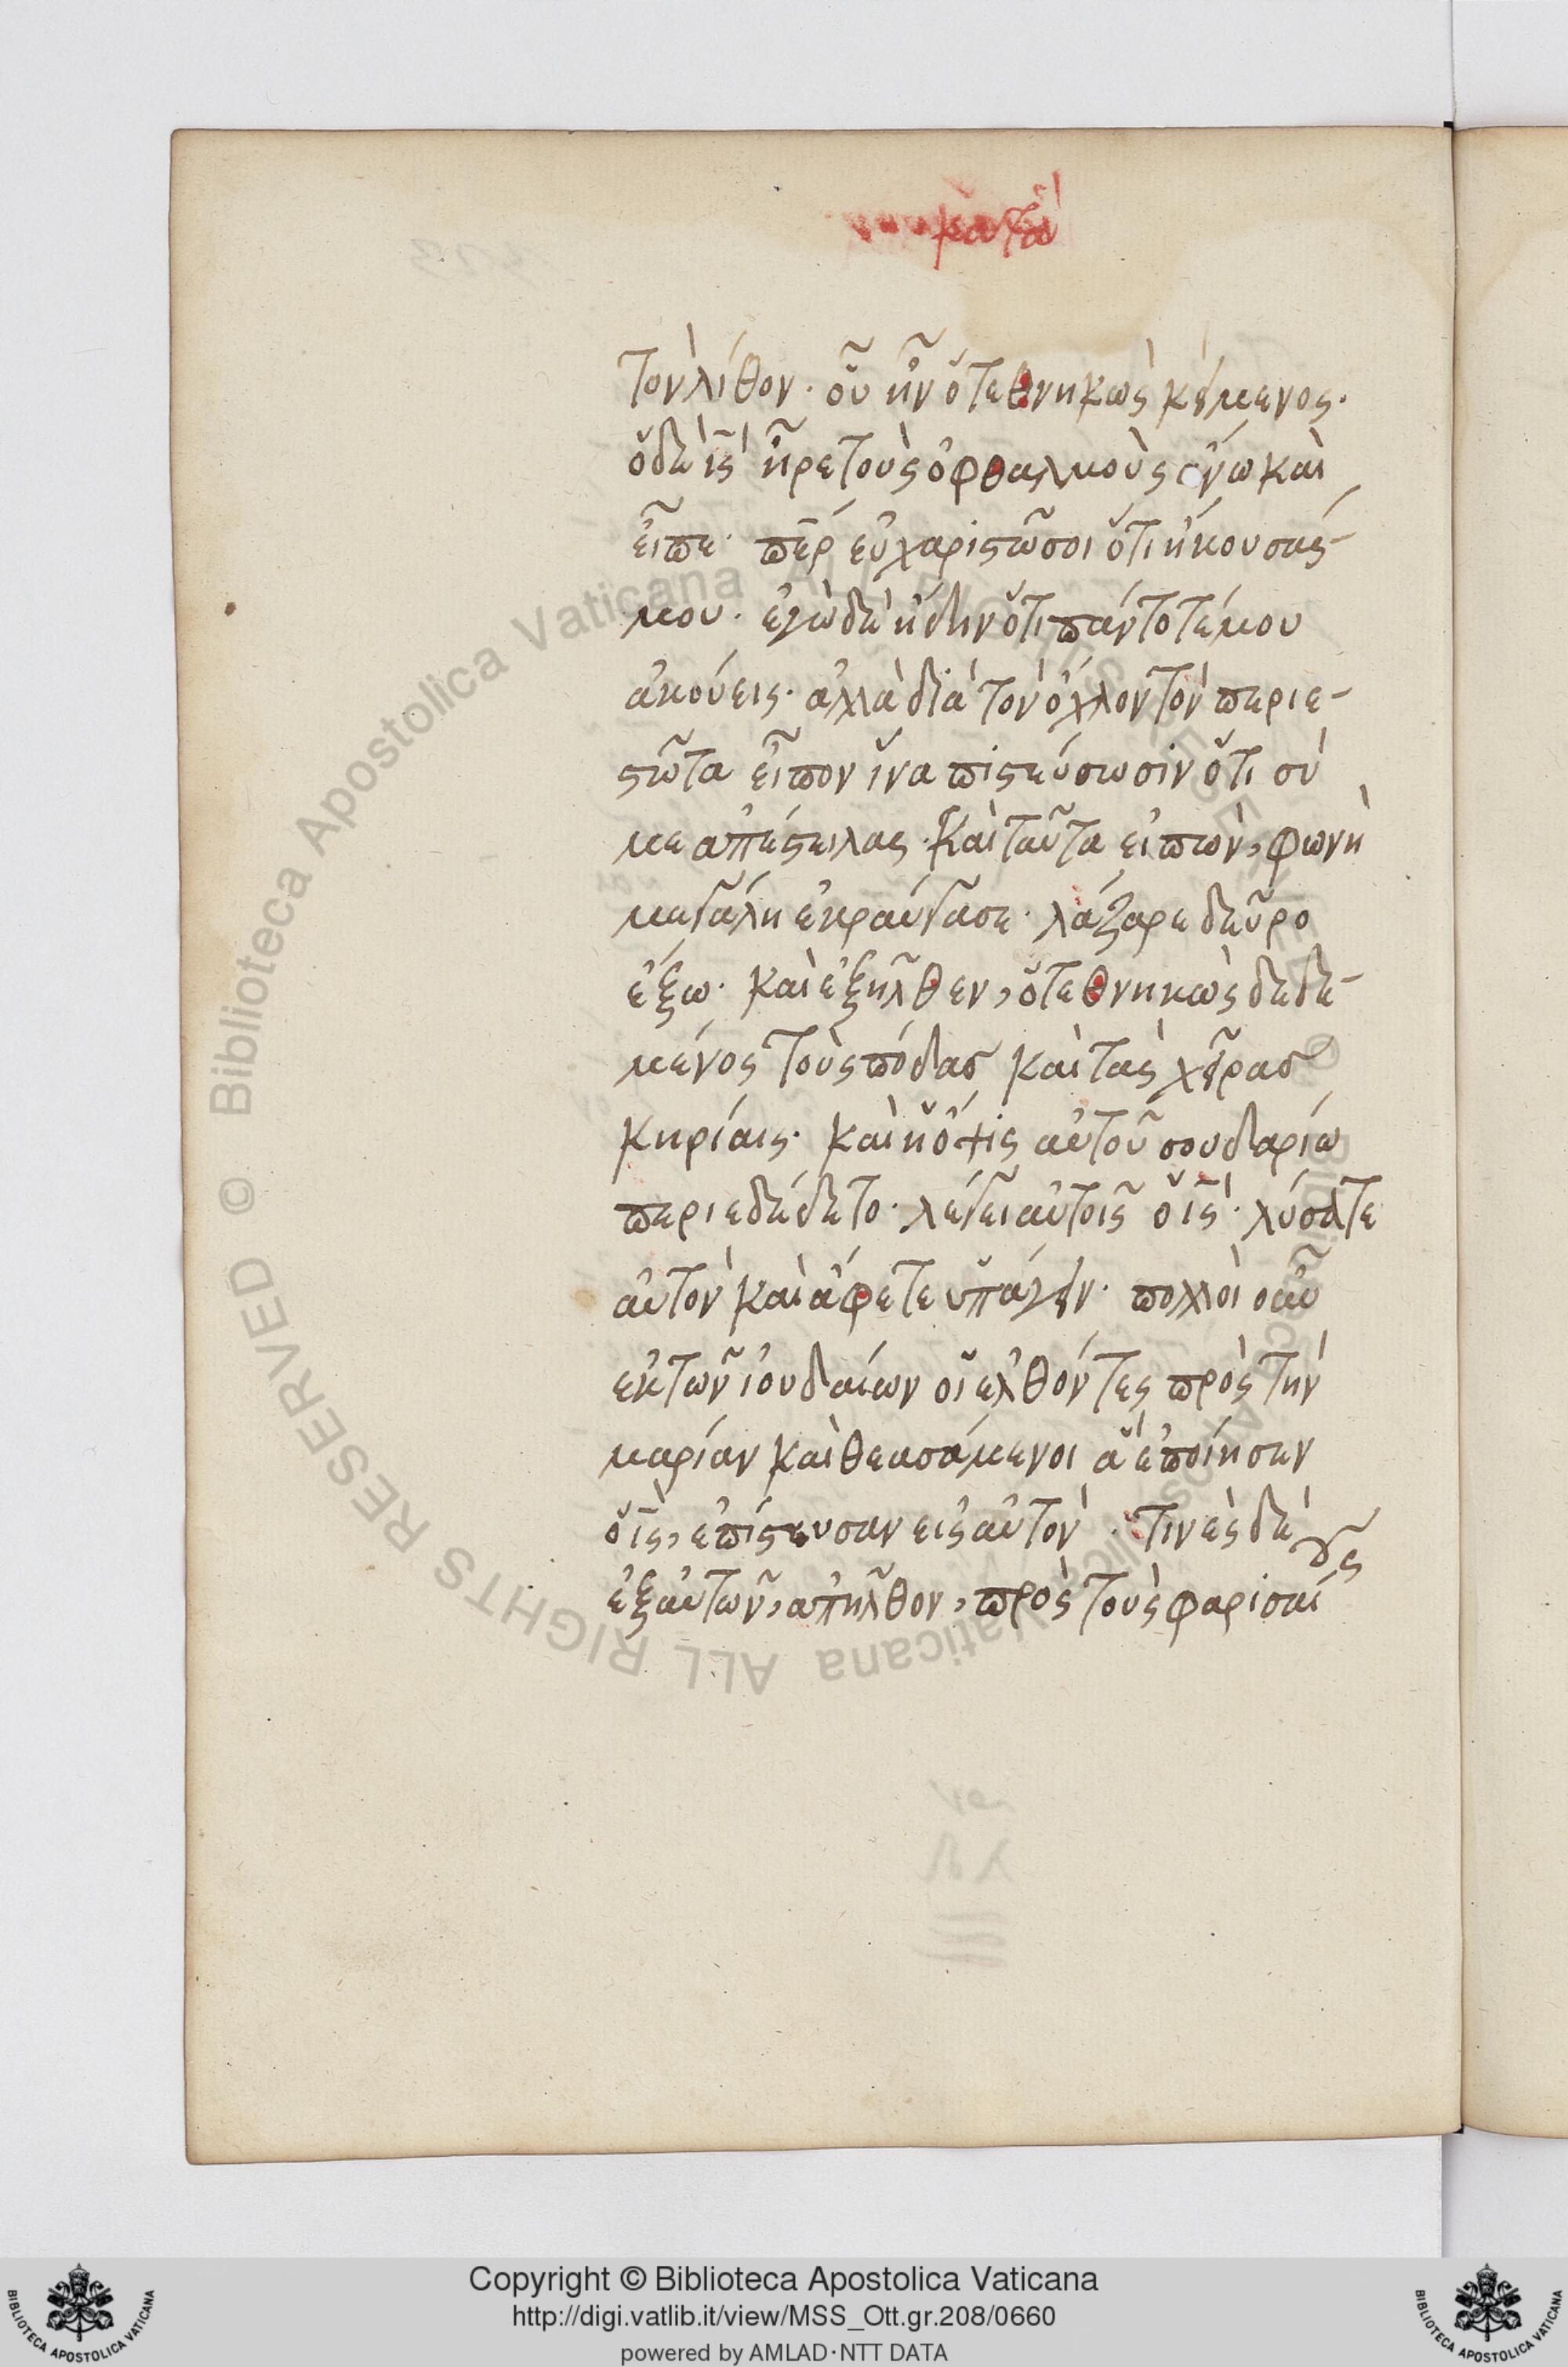 κατὰ
τὸν λίθον· οὗ ἦν ὁ τεθνηκὼς κείμενος·
ὁ δὲ ι̅ς̅ ἦρε τοὺς ὀφθαλμοὺς ἄνω καὶ
εἶπε· π̅ε̅ρ εὐχαριστῶ σοι ὅτι ἤκουσάς
μου· ἐγὼ δὲ ἤδην ὅτι πάντοτέ μου
ἀκούεις· ἀλλὰ διὰ τὸν ὄχλον τὸν περιε-
στῶτα εἶπον ἵνα πιστεύσωσιν ὅτι σύ
με ἀπέστειλας· Καὶ ταῦτα εἰπὼν, φωνὴ
μεγάλη ἐκραύγασε· λάζαρε δεῦρο
ἔξω· καὶ ἐξῆλθεν, ὁ τεθνηκὼς δεδε-
μένος τοὺς πόδας καὶ τὰς χεῖρας
κηρίαις· καὶ ἡ ὄψις αὐτοῦ σουδαρίω
περιεδέδετο· λέγει αὐτοῖς ὁ ι̅ς̅· λύσατε
αὐτὸν καὶ ἄφετε ὑπάγειν· πολλοὶ οὖν
ἐκ τῶν ἰουδαίων οἱ ἐλθόντες πρὸς τὴν
μαρίαν καὶ θεασάμενοι ἃ ἐποίησεν
ὁ ι̅ς̅, ἐπίστευσαν εἰς αὐτὸν· τινὲς δὲ
ἐξ αὐτῶν, ἀπῆλθον, πρὸς τοὺς φαρισαί
ους
Copyright © Biblioteca Apostolica Vaticana
http://digi.vatlib.it/view/MSS_Ott.gr.208/0660
powered by AMLAD·NTT DATA
© Biblioteca Apostolica Vaticana ALL RIGHTS RESERVED
BIBLIOTECA APOSTOLICA VATICANA
BIBLIOTECA APOSTOLICA VATICANA